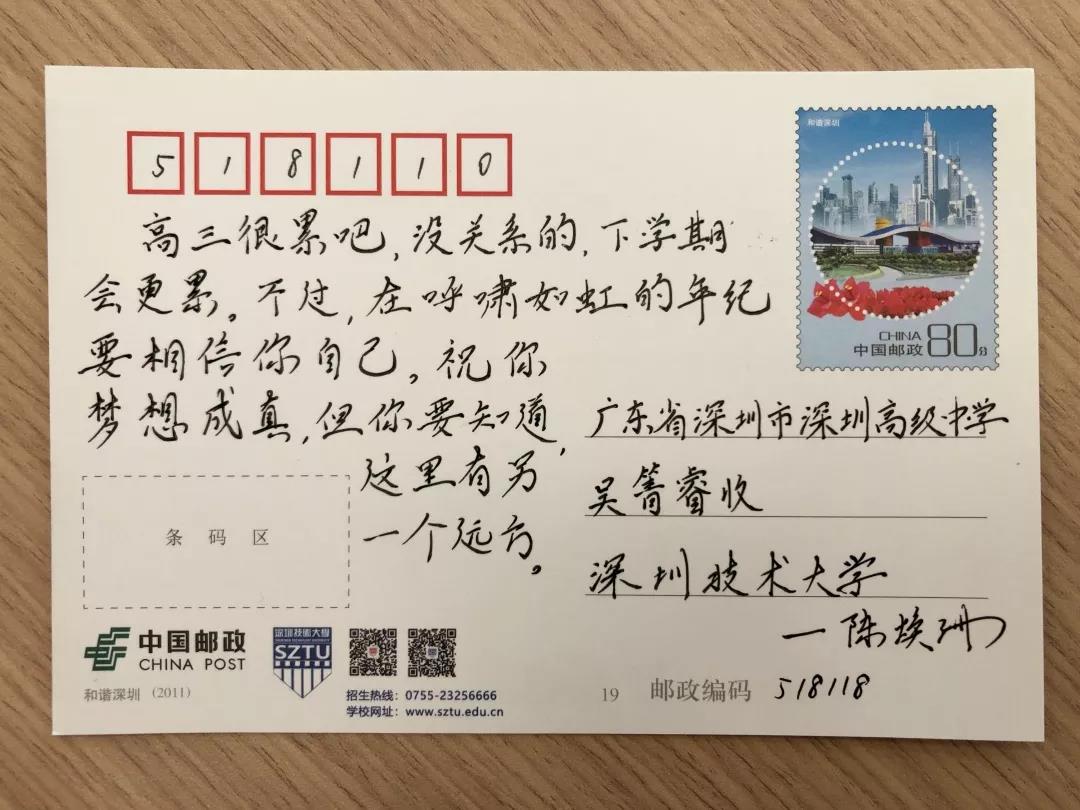 518110
和谐深圳
高三很累吧,没关系的,下学期
会更累。不过,在呼啸如虹的年纪
要相信你自己。祝你
梦想成真,但你要知道,
这里有另
一个远方。
CHINA
中国邮政 80分
广东省深圳市深圳高级中学
吴箐睿收
深圳技术大学
—陈焕洲
条码区
中国邮政
CHINA POST
深圳技術大學
SZTU
和谐深圳 (2011)
招生热线:0755-23256666
学校网址:www.sztu.edu.cn
19 邮政编码 518118